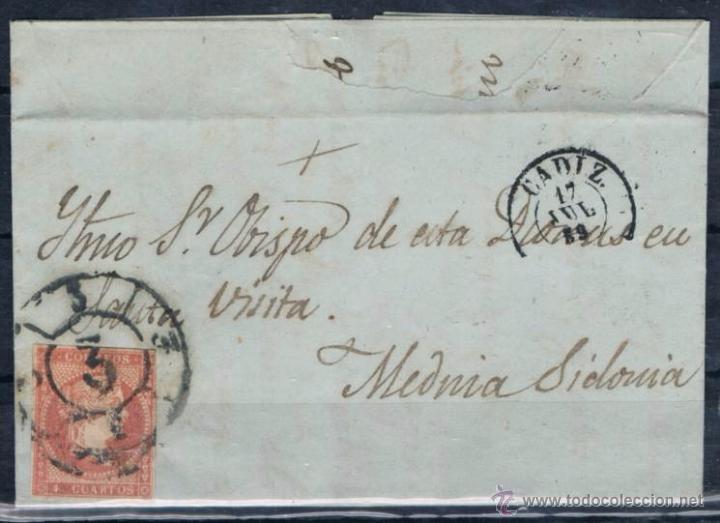 CADIZ.
17
JUL
59
Ytmo Sr Obispo de esta Diocesis en
Santa Visita.
Medina Sidonia
3
CORREOS
4 CUARTOS
© www.todocoleccion.net